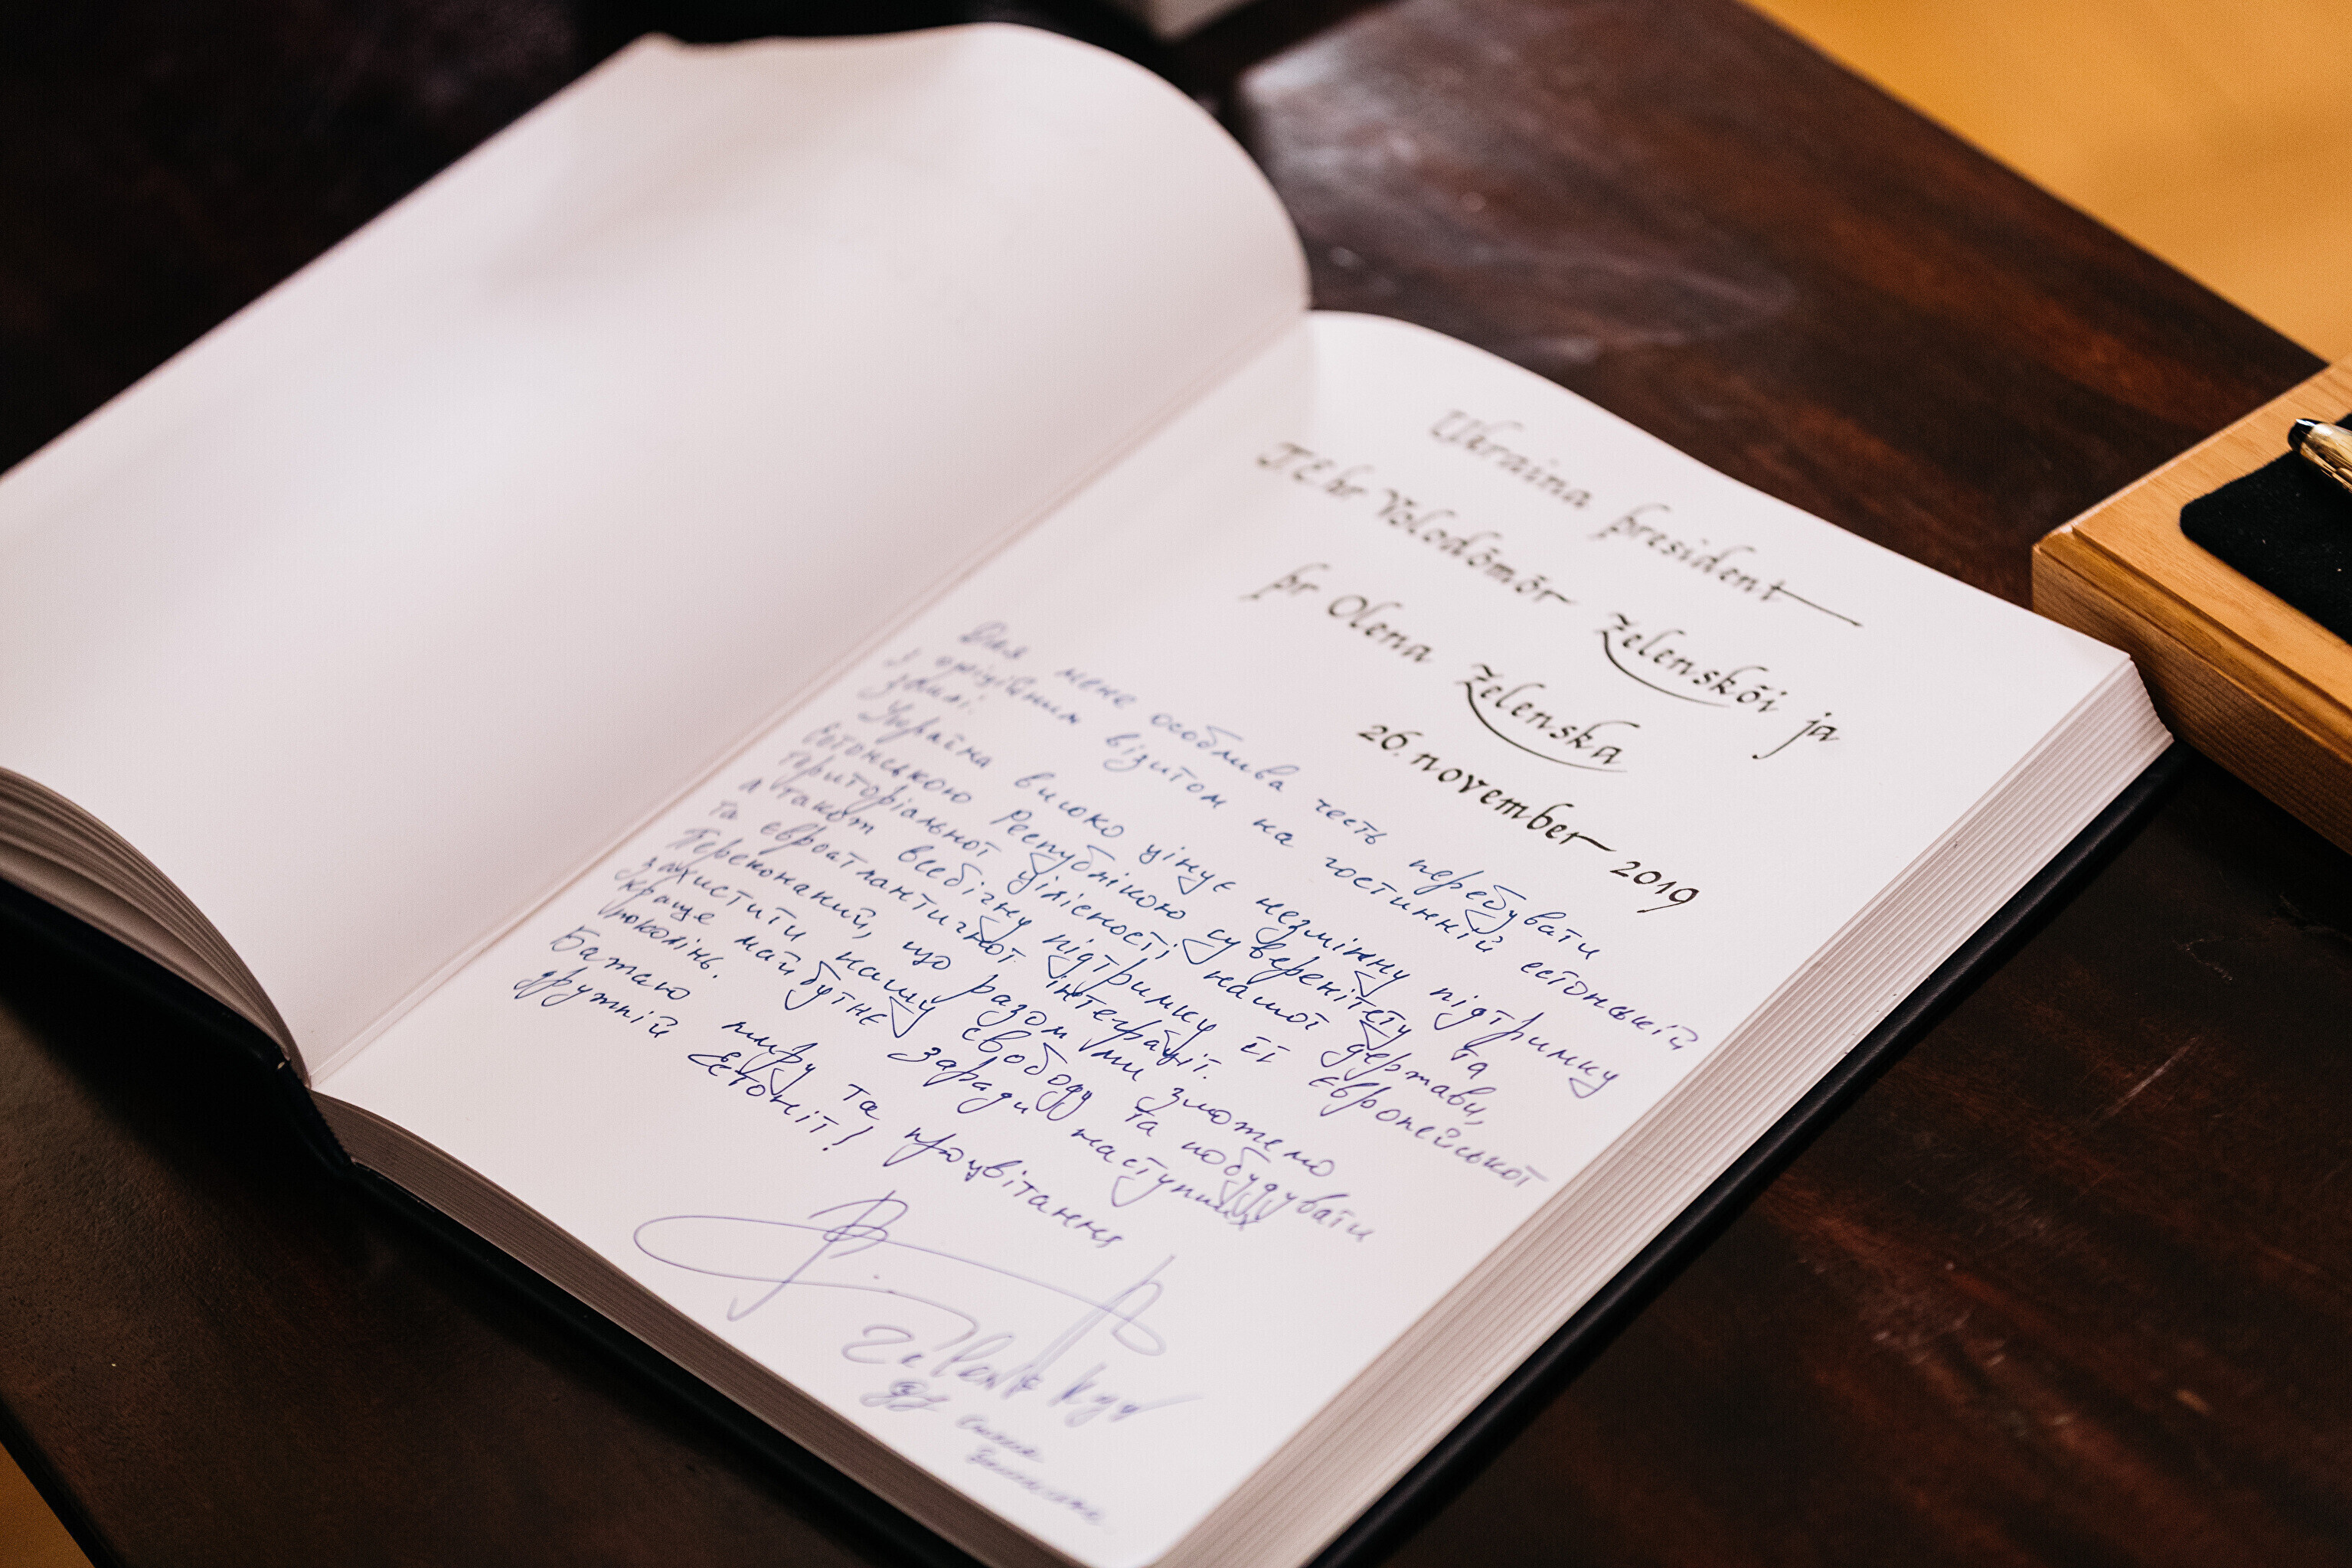 Ukraina president
T.E. hr Volodõmõr Zelenskõi ja
pr Olena Zelenska
26. november 2019
Для мене особлива честь перебувати
з офіційним візитом на гостинній естонській
землі.
Україна високо цінує незмінну підтримку
Естонською Республікою суверенітету та
територіальної цілісності нашої держави,
а також всебічну підтримку її європейської
та євроатлантичної інтеграції.
Переконаний, що разом ми зможемо
захистити нашу свободу та побудувати
краще майбутнє заради наступних
поколінь.
Бажаю миру та процвітання
дружній Естонії!